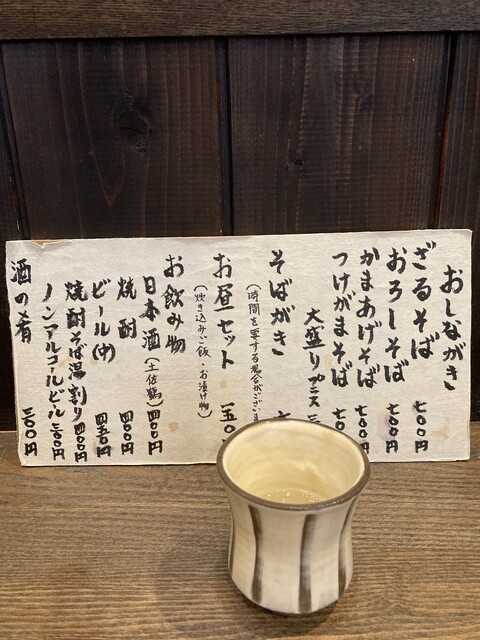 おしながき
ざるそば 七〇〇円
おろしそば 七〇〇円
かまあげそば 七〇〇円
つけがまそば 七〇
大盛りプラス 三
そばがき 七
(時間を要する場合がございます
お昼セット 一五〇
(炊き込みご飯・お漬け物)
お飲み物
日本酒(土佐鶴) 四〇〇円
焼酎 四〇〇円
ビール(中) 四五〇円
焼酎そば湯割り 四〇〇円
ノンアルコールビール 三〇〇円
酒の肴 三〇〇円